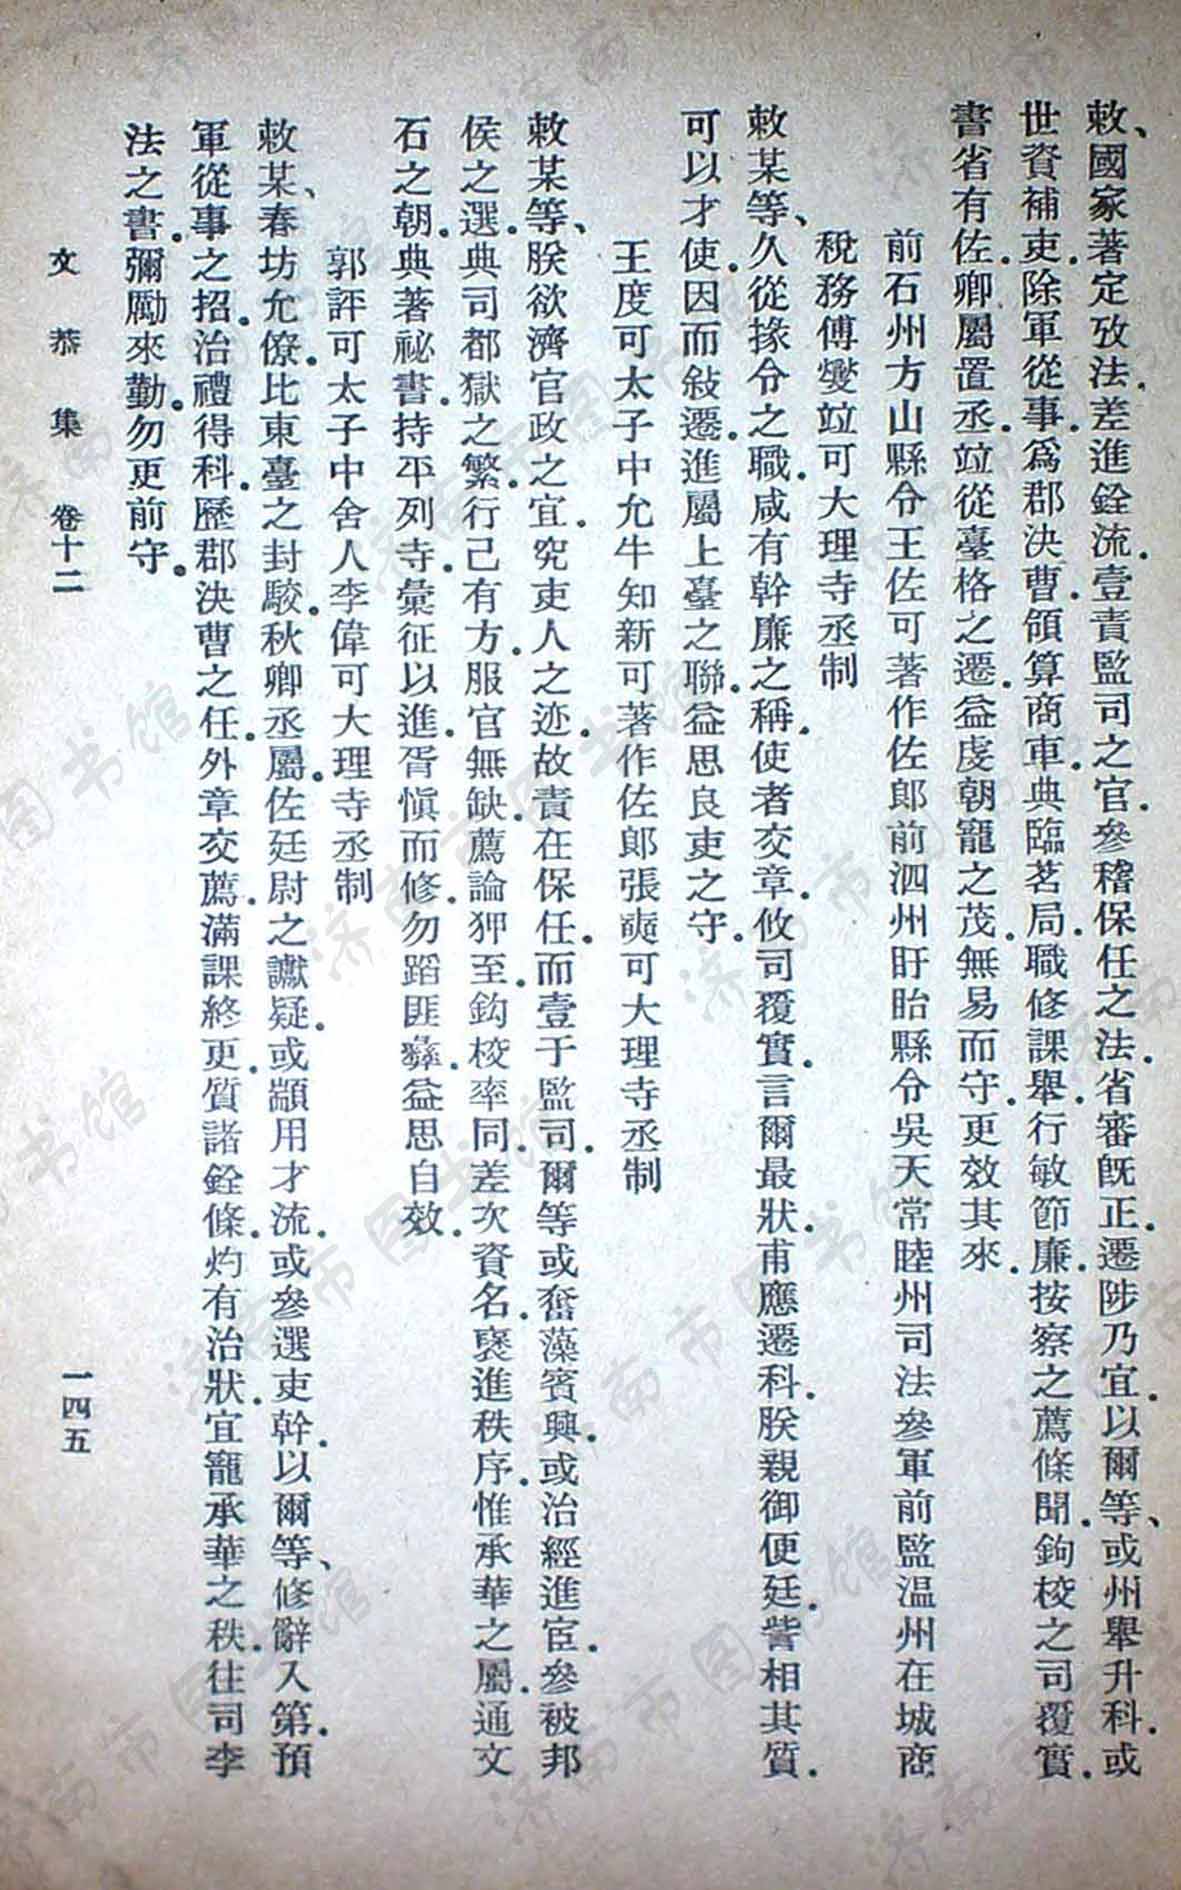 敕、國家著定攷法．差進銓流．壹責監司之官．參稽保任之法．省審旣正．遷陟乃宜．以爾等、或州舉升科．或
世資補吏．除軍從事．爲郡決曹．領算商車．典臨茗局．職修課舉．行敏節廉．按察之薦條聞．鉤校之司覆實．
書省有佐．卿屬置丞．竝從臺格之遷．益虔朝寵之茂．無易而守．更效其來．
前石州方山縣令王佐可著作佐郎前泗州盱眙縣令吳天常睦州司法參軍前監温州在城商
稅務傅燮竝可大理寺丞制
敕某等、久從掾令之職．咸有幹廉之稱．使者交章．攸司覆實．言爾最狀．甫應遷科．朕親御便廷．訾相其質．
可以才使．因而敍遷．進屬上臺之聯．益思良吏之守．
王度可太子中允牛知新可著作佐郎張奭可大理寺丞制
敕某等、朕欲濟官政之宜．究吏人之迹．故責在保任．而壹于監司．爾等或奮藻賓興．或治經進宦．參被邦
侯之選．典司都獄之繁．行己有方．服官無缺．薦論狎至．鈎校率同．差次資名．褒進秩序．惟承華之屬．通文
石之朝．典著祕書．持平列寺．彙征以進．胥愼而修．勿蹈匪彝．益思自效．
郭評可太子中舍人李偉可大理寺丞制
敕某、春坊允僚．比東臺之封駮．秋卿丞屬．佐廷尉之讞疑．或顓用才流．或參選吏幹．以爾等、修辭入第．預
軍從事之招．治禮得科．歷郡決曹之任．外章交薦．滿課終更．質諸銓條．灼有治狀．宜寵承華之秩．往司李
法之書．彌勵來勤．勿更前守．
文恭集　卷十二　一四五
济南市图书馆